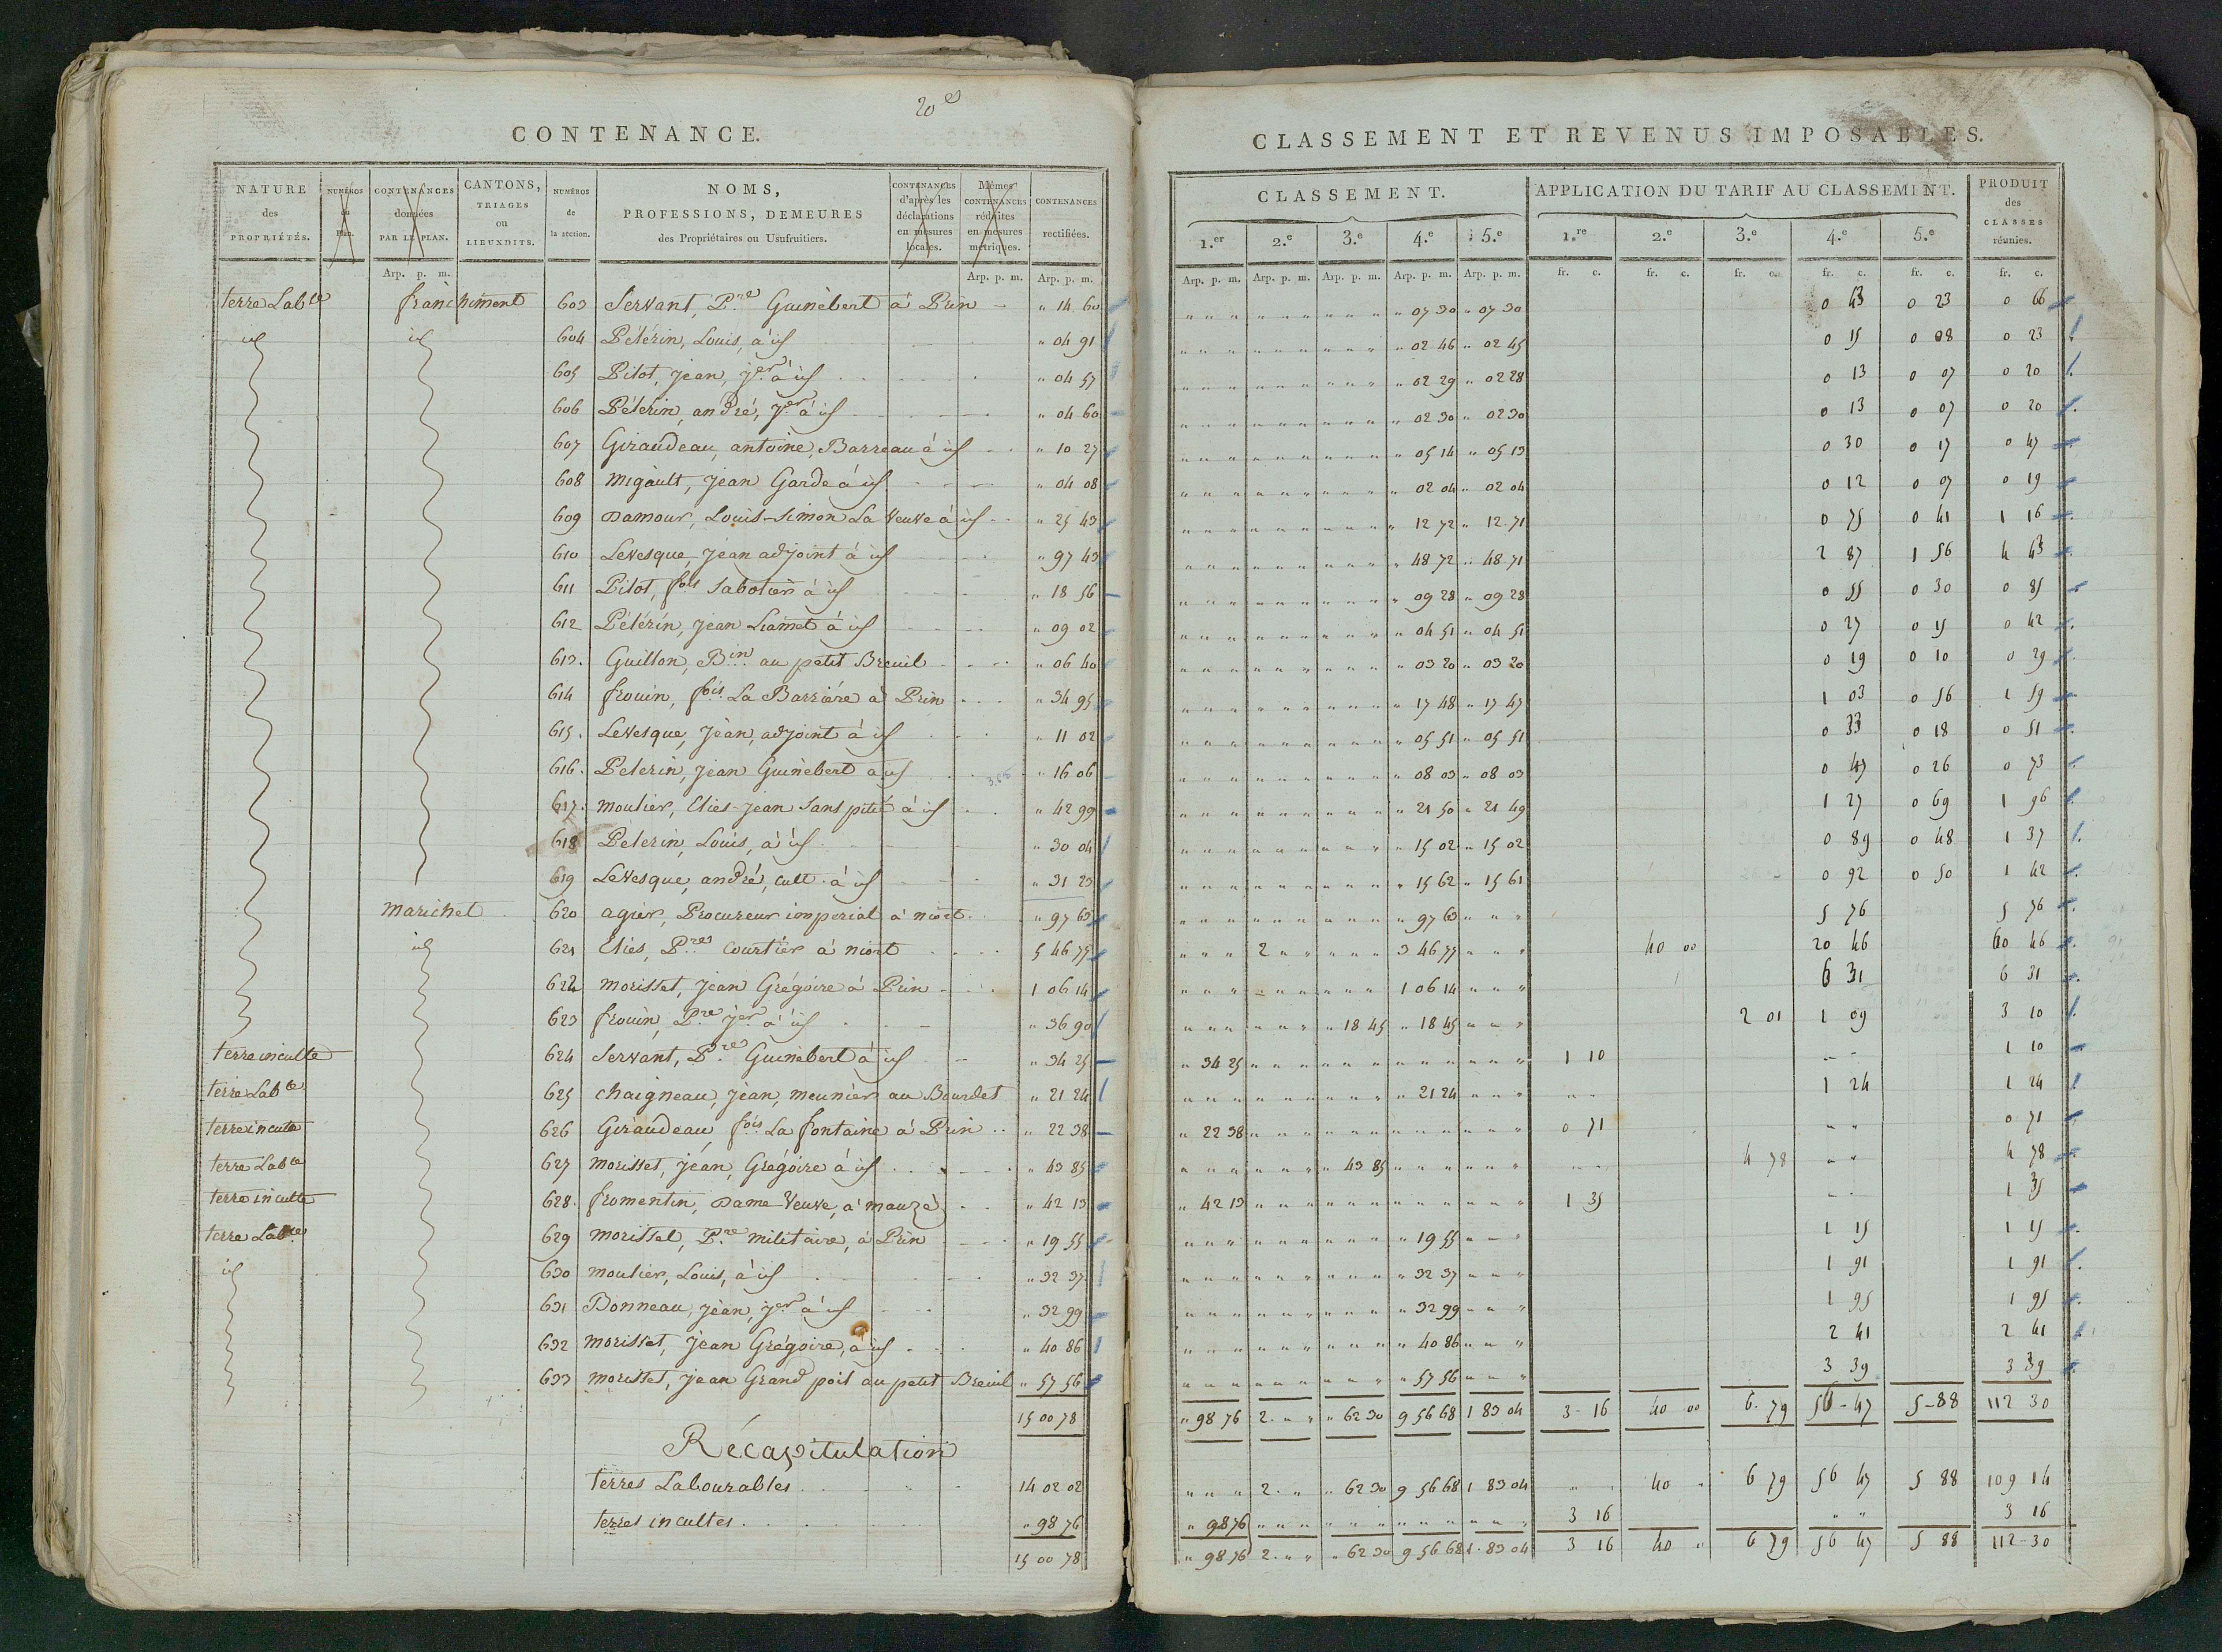 20e
CONTENANCE.
NATURE des PROPRIÉTÉS. NUMÉROS du Plan. CONTENANCES données PAR LE PLAN. CANTONS, TRIAGES ou LIEUXDITS. NUMÉROS de la section. NOMS, PROFESSIONS, DEMEURES des Propriétaires ou Usufruitiers. CONTENANCES d'après les déclarations en mesures locales. Mêmes CONTENANCES réduites en mesures métriques. CONTENANCES rectifiées.
Arp. p. m. Arp. p. m. Arp. p. m.
terre Lable franchiment 603 Servant, Pre Guinebert à Prin " 14 60
id id 604 Pélérin, Louis, à id " 04 91
605 Pilot, jean, jer à id " 04 57
606 Pélérin, andré, jer à id " 04 60
607 Giraudeau, antoine, Barreau à id " 10 27
608 migault, jean Garde à id " 04 08
609 Damour, Louis-Simon La Veuve à id " 25 43
610 Levesque, jean adjoint à id " 97 43
611 Pilot, fois Sabotier à id " 18 56
612 Pélérin, jean Liamet à id " 09 02
613. Guillon, Bin au petit Breuil " 06 40
614 frouin, fois La Barrière à Prin " 34 95
615. Levesque, jean, adjoint à id " 11 02
616. Pelerin, jean Guinebert à id " 16 06
617. moulier, Elies-jean Sans pitié à id " 42 99
618 Pelerin, Louis, à id " 30 04
619 Levesque, andré, cult. à id " 31 23
marichet 620 agier, Procureur imperial à niort " 97 63
id 621 Elies, Pre Courtier à niort 5 46 77
622 morisset, jean Grégoire à Prin 1 06 14
623 frouin, Pre jer à id " 36 90
terre inculte 624 Servant, Pre Guinebert à id " 34 25
terre Lable 625 chaigneau, jean, meunier au Bourdet " 21 24
terre inculte 626 Giraudeau, fois La fontaine à Prin " 22 38
terre Lable 627 morisset, jean, Grégoire à id " 43 85
terre inculte 628. fromentin, Dame Veuve, à mauzé " 42 13
terre Lable 629 morisset, Pre militaire, à Prin " 19 55
id 630 moulier, Louis, à id " 32 37
631 Bonneau, jean, jer à id " 32 99
632 morisset, jean Grégoire, à id " 40 86
633 morisset, jean Grand poil au petit Breuil " 57 56
15 00 78
Récapitulation
terres Labourables 14 02 02
terres incultes " 98 76
15 00 78
CLASSEMENT ET REVENUS IMPOSABLES.
CLASSEMENT. APPLICATION DU TARIF AU CLASSEMENT. PRODUIT des CLASSES réunies.
1.er 2.e 3.e 4.e 5.e 1.re 2.e 3.e 4.e 5.e
Arp. p. m. Arp. p. m. Arp. p. m. Arp. p. m. Arp. p. m. fr. c. fr. c. fr. c. fr. c. fr. c. fr. c.
" 07 30 " 07 30 0 43 0 23 0 66
" 02 46 " 02 45 0 15 0 08 0 23
" 02 29 " 02 28 0 13 0 07 0 20
" 02 30 " 02 30 0 13 0 07 0 20
" 05 14 " 05 13 0 30 0 17 0 47
" 02 04 " 02 04 0 12 0 07 0 19
" 12 72 " 12 71 0 75 0 41 1 16
" 48 72 " 48 71 2 87 1 56 4 43
" 09 28 " 09 28 0 55 0 30 0 85
" 04 51 " 04 51 0 27 0 15 0 42
" 03 20 " 03 20 0 19 0 10 0 29
" 17 48 " 17 47 1 03 0 56 1 59
" 05 51 " 05 51 0 33 0 18 0 51
" 08 03 " 08 03 0 47 0 26 0 73
" 21 50 " 21 49 1 27 0 69 1 96
" 15 02 " 15 02 0 89 0 48 1 37
" 15 62 " 15 61 0 92 0 50 1 42
" 97 63 " " " 5 76 5 76
2 " " 3 46 77 " " " 40 00 20 46 60 46
1 06 14 " " " 6 31 6 31
" 18 45 " 18 45 " " " 2 01 1 09 3 10
" 34 25 1 10 1 10
" 21 24 " " " 1 24 1 24
" 22 38 0 71 0 71
" 43 85 4 78 4 78
" 42 13 1 35 1 35
" 19 55 1 15 1 15
" 32 37 1 91 1 91
" 32 99 1 95 1 95
" 40 86 2 41 2 41
" 57 56 3 39 3 39
" 98 76 2 " " " 62 30 9 56 68 1 83 04 3-16 40 00 6-79 56-47 5-88 112 30
2 " " 62 30 9 56 68 1 83 04 40 " 6 79 56 47 5 88 109 14
" 98 76 3 16 " " 3 16
" 98 76 2 " " " 62 30 9 56 68 1.83 04 3 16 40 " 6 79 56 47 5 88 112-30